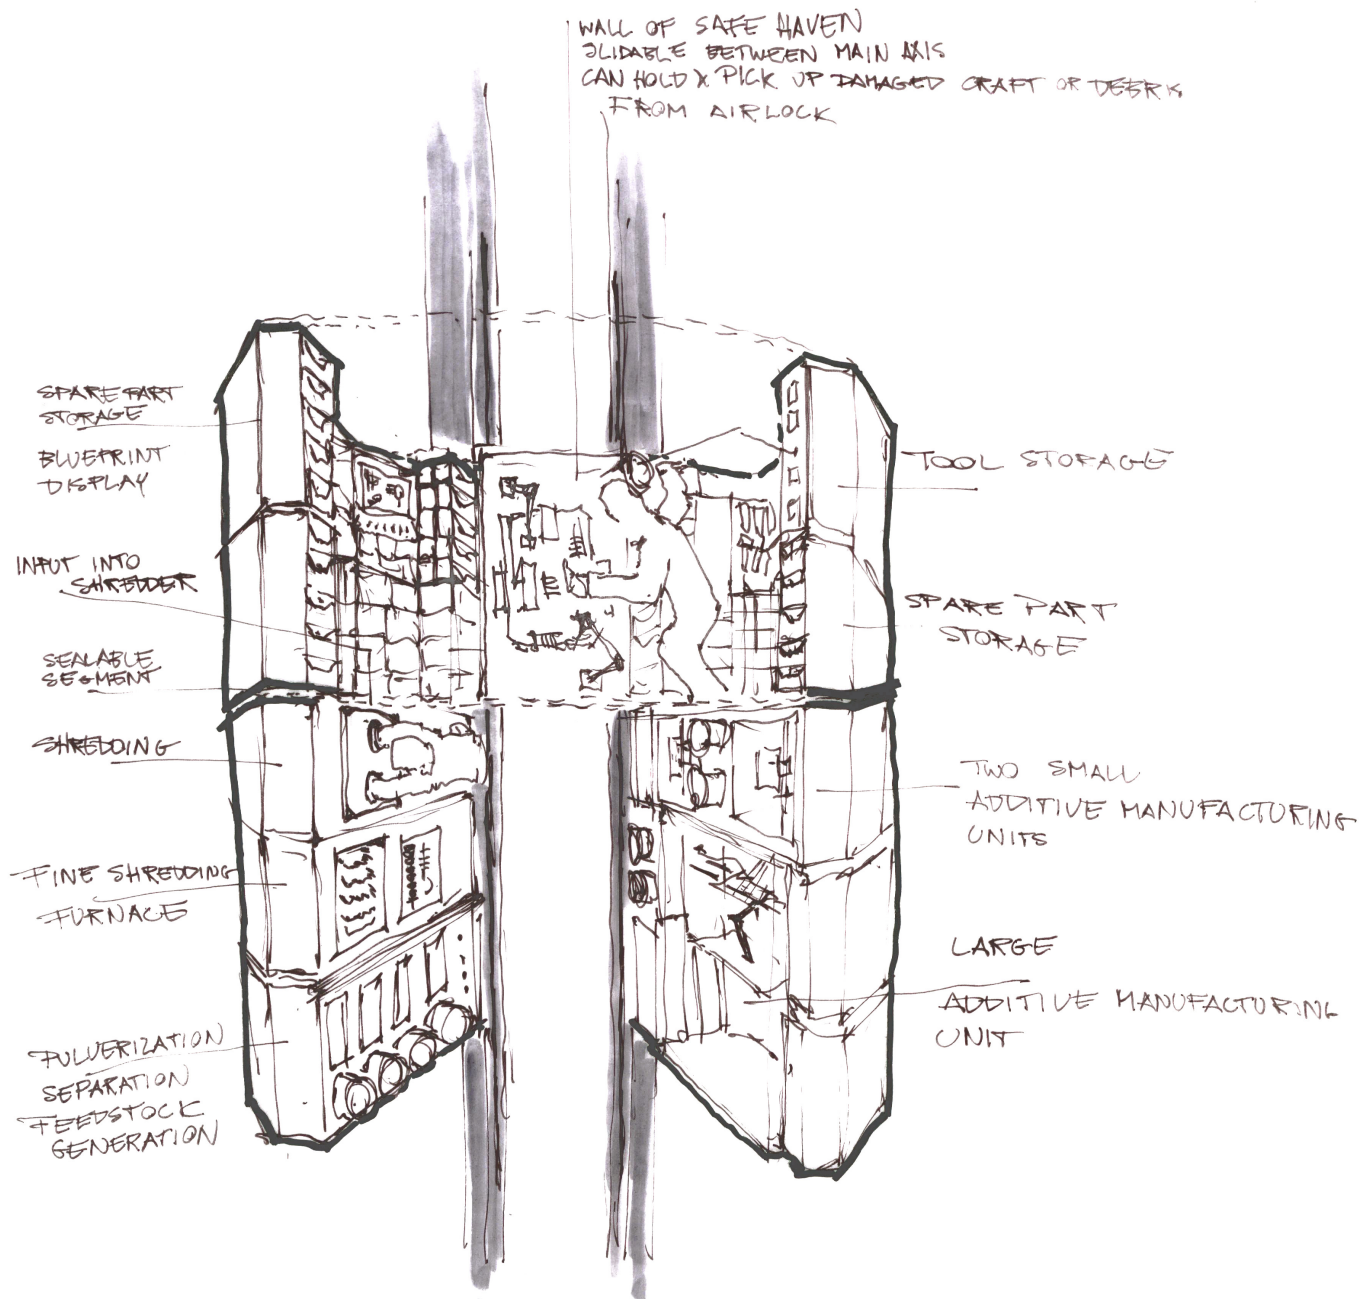 WALL OF SAFE HAVEN
SLIDABLE BETWEEN MAIN AXIS
CAN HOLD & PICK UP DAMAGED CRAFT OR DEBRIS
FROM AIRLOCK
SPARE PART
STORAGE
BLUEPRINT
DISPLAY
INPUT INTO
SHREDDER
SEALABLE
SEGMENT
SHREDDING
FINE SHREDDING
FURNACE
PULVERIZATION
SEPARATION
FEEDSTOCK
GENERATION
TOOL STORAGE
SPARE PART
STORAGE
TWO SMALL
ADDITIVE MANUFACTURING
UNITS
LARGE
ADDITIVE MANUFACTURING
UNIT